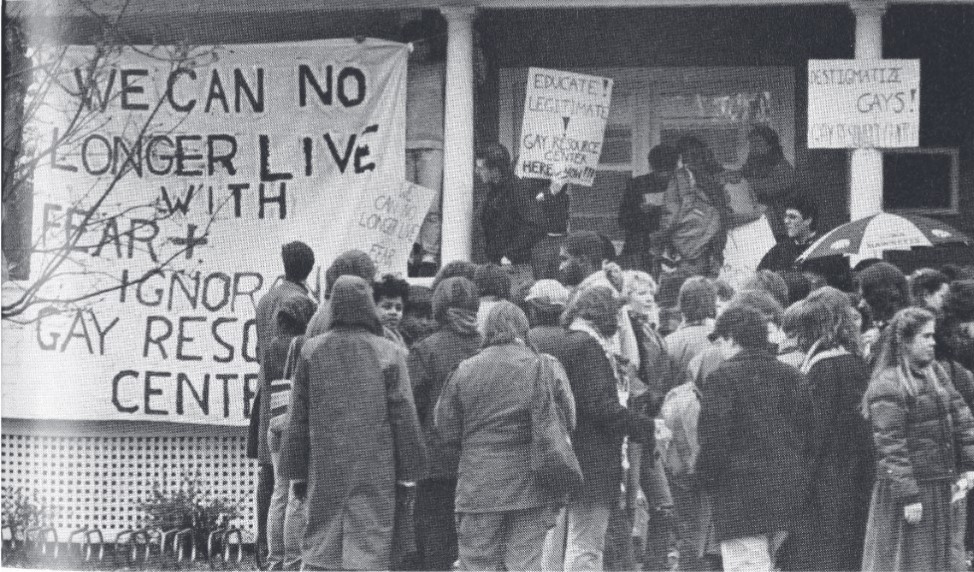 WE CAN NO
LONGER LIVE
WITH
FEAR +
IGNOR
GAY RESO
CENTE
WE
CAN NO
LONGER LIVE
FEAR
EDUCATE!
LEGITIMATE
GAY RESOURCE
CENTER
HERE
DESTIGMATIZE
GAYS!